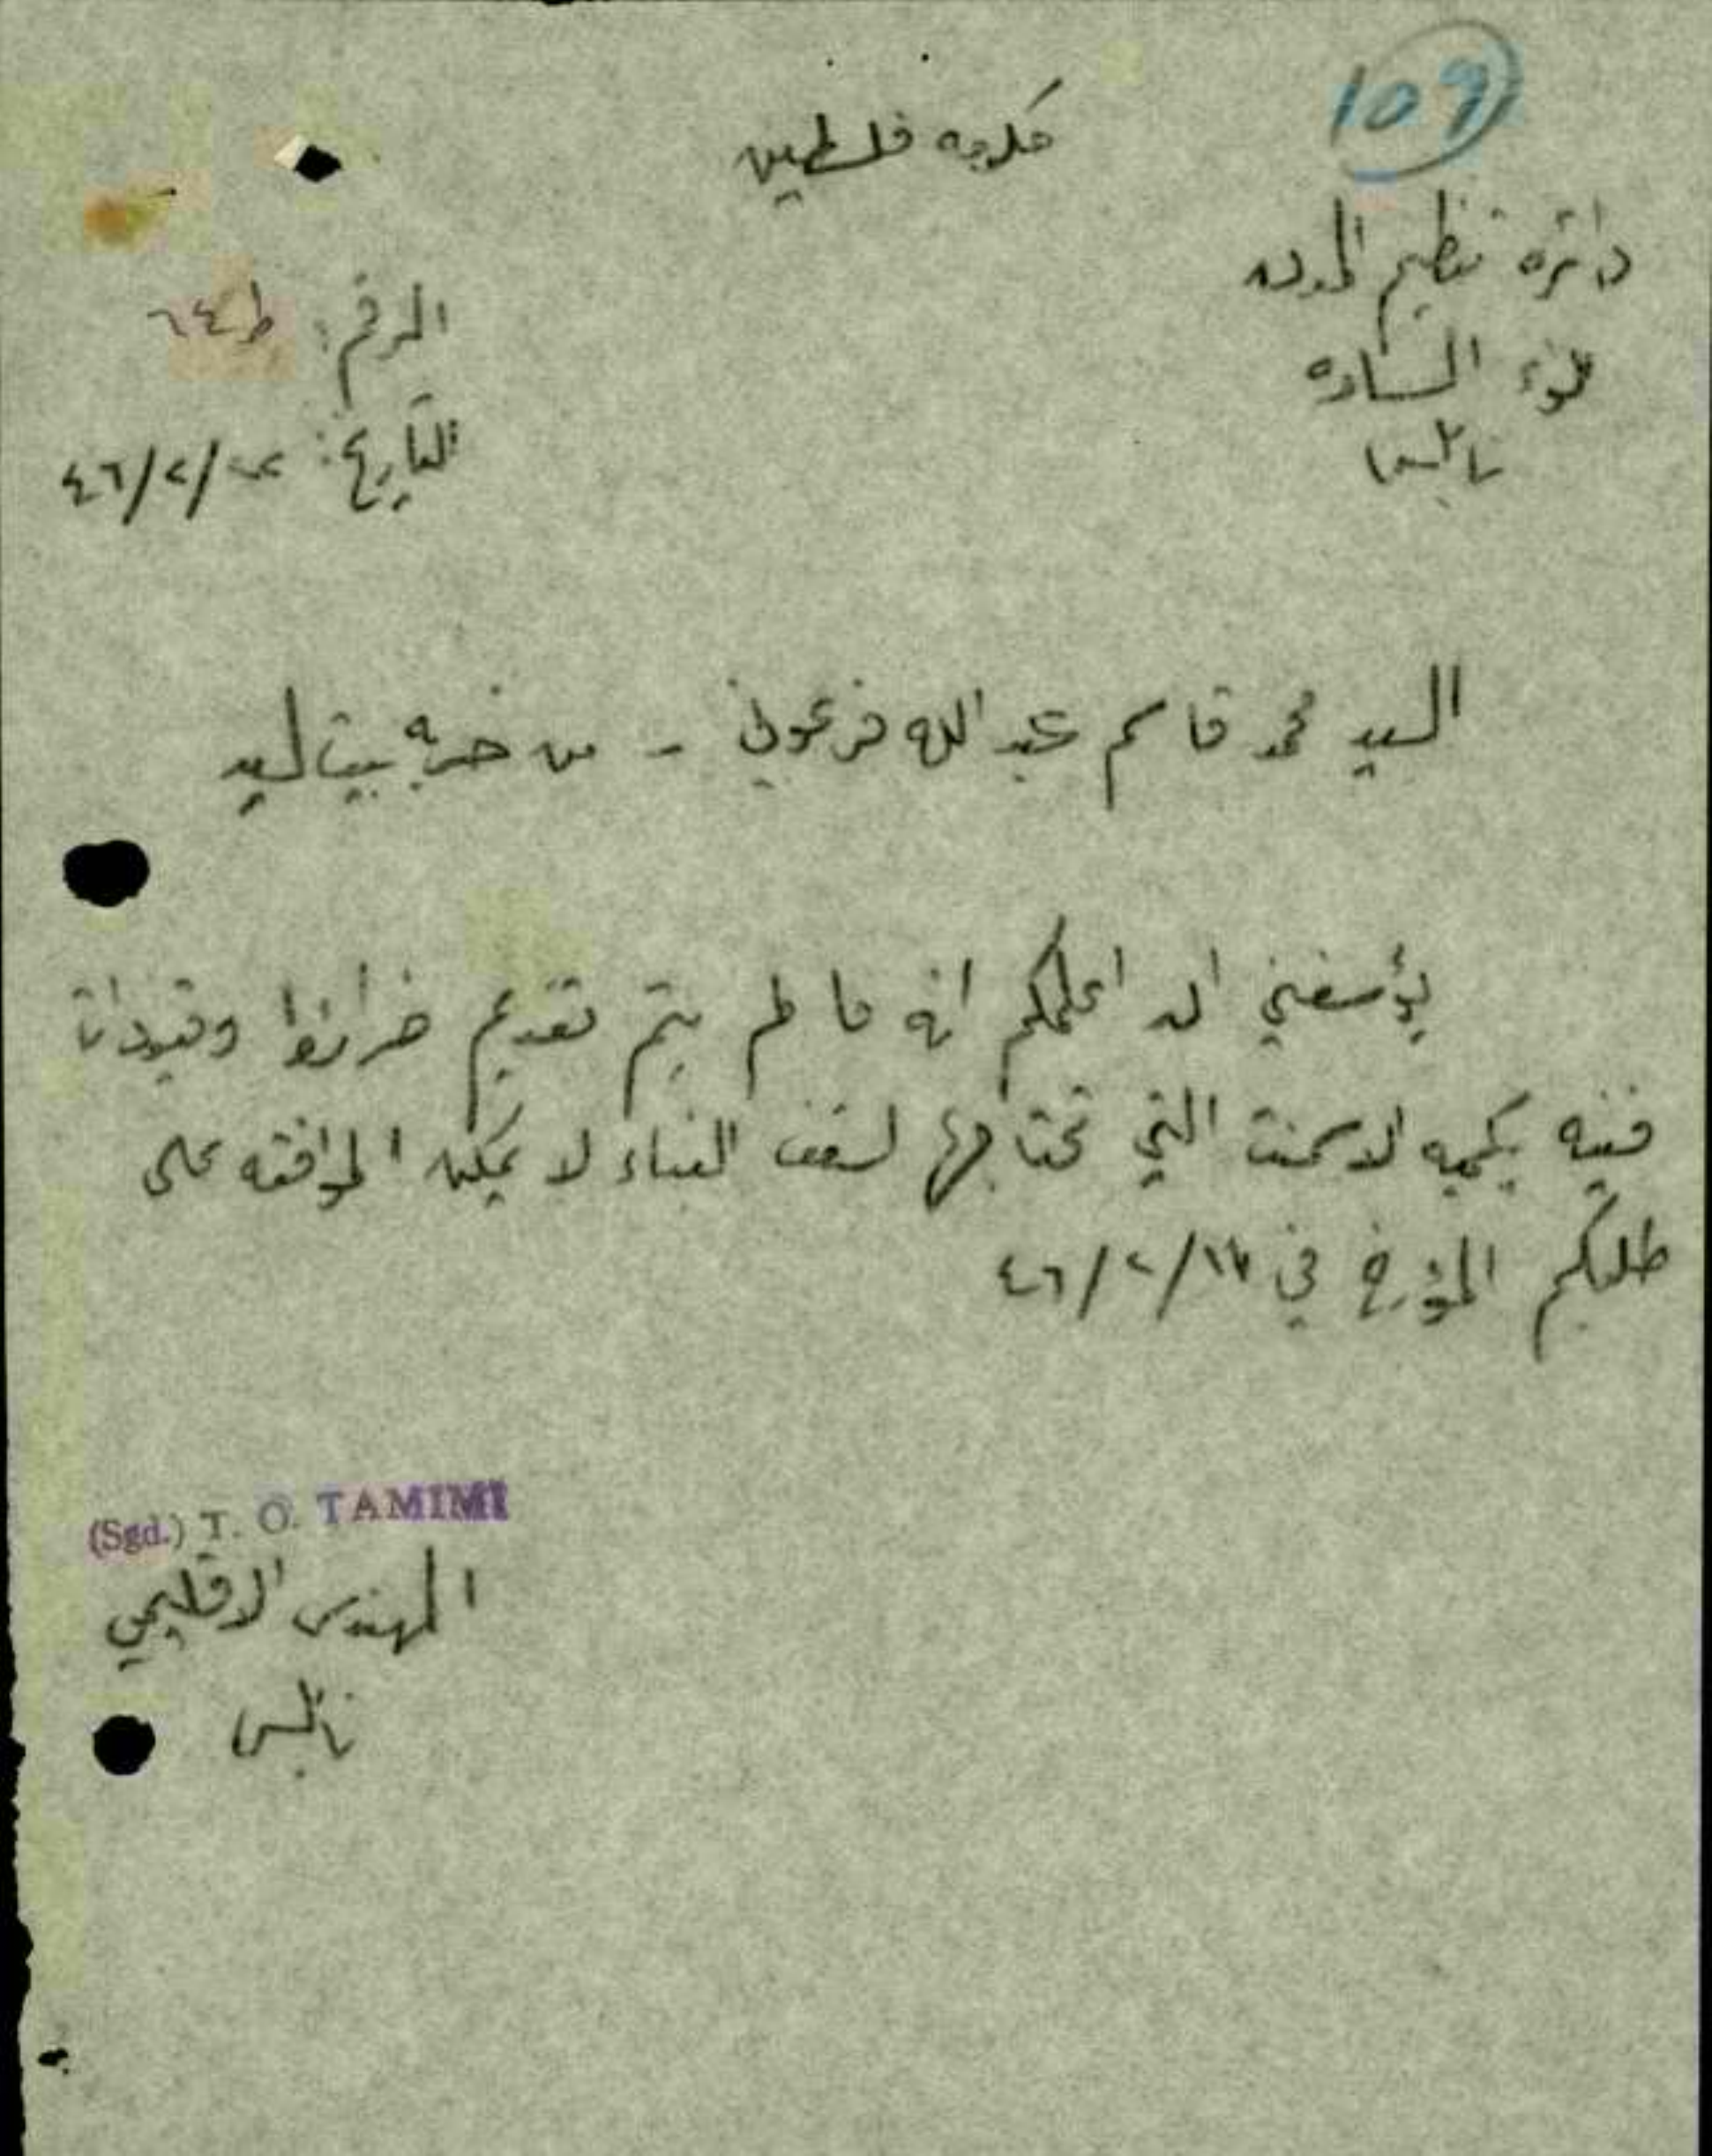 109
حكومة فلسطين
دائرة تنظيم المدن
لواء السامره
نابلس
الرقم: ط ٦٤
التاريخ: ٢٢/٢/٤٦
السيد محمد قاسم عبد الله فرعوني - من خربه بيت ليد
يؤسفني ان اعلمكم انه ما لم يتم تقديم خرائط وتقيدات
فنيه بكميه الاسمنت التي تحتاجها لسقف البناء لا يمكن الموافقه على
طلبكم المؤرخ في ١٧/٢/٤٦
(Sgd.) T. O. TAMIMI
المهندس الاقليمي
نابلس